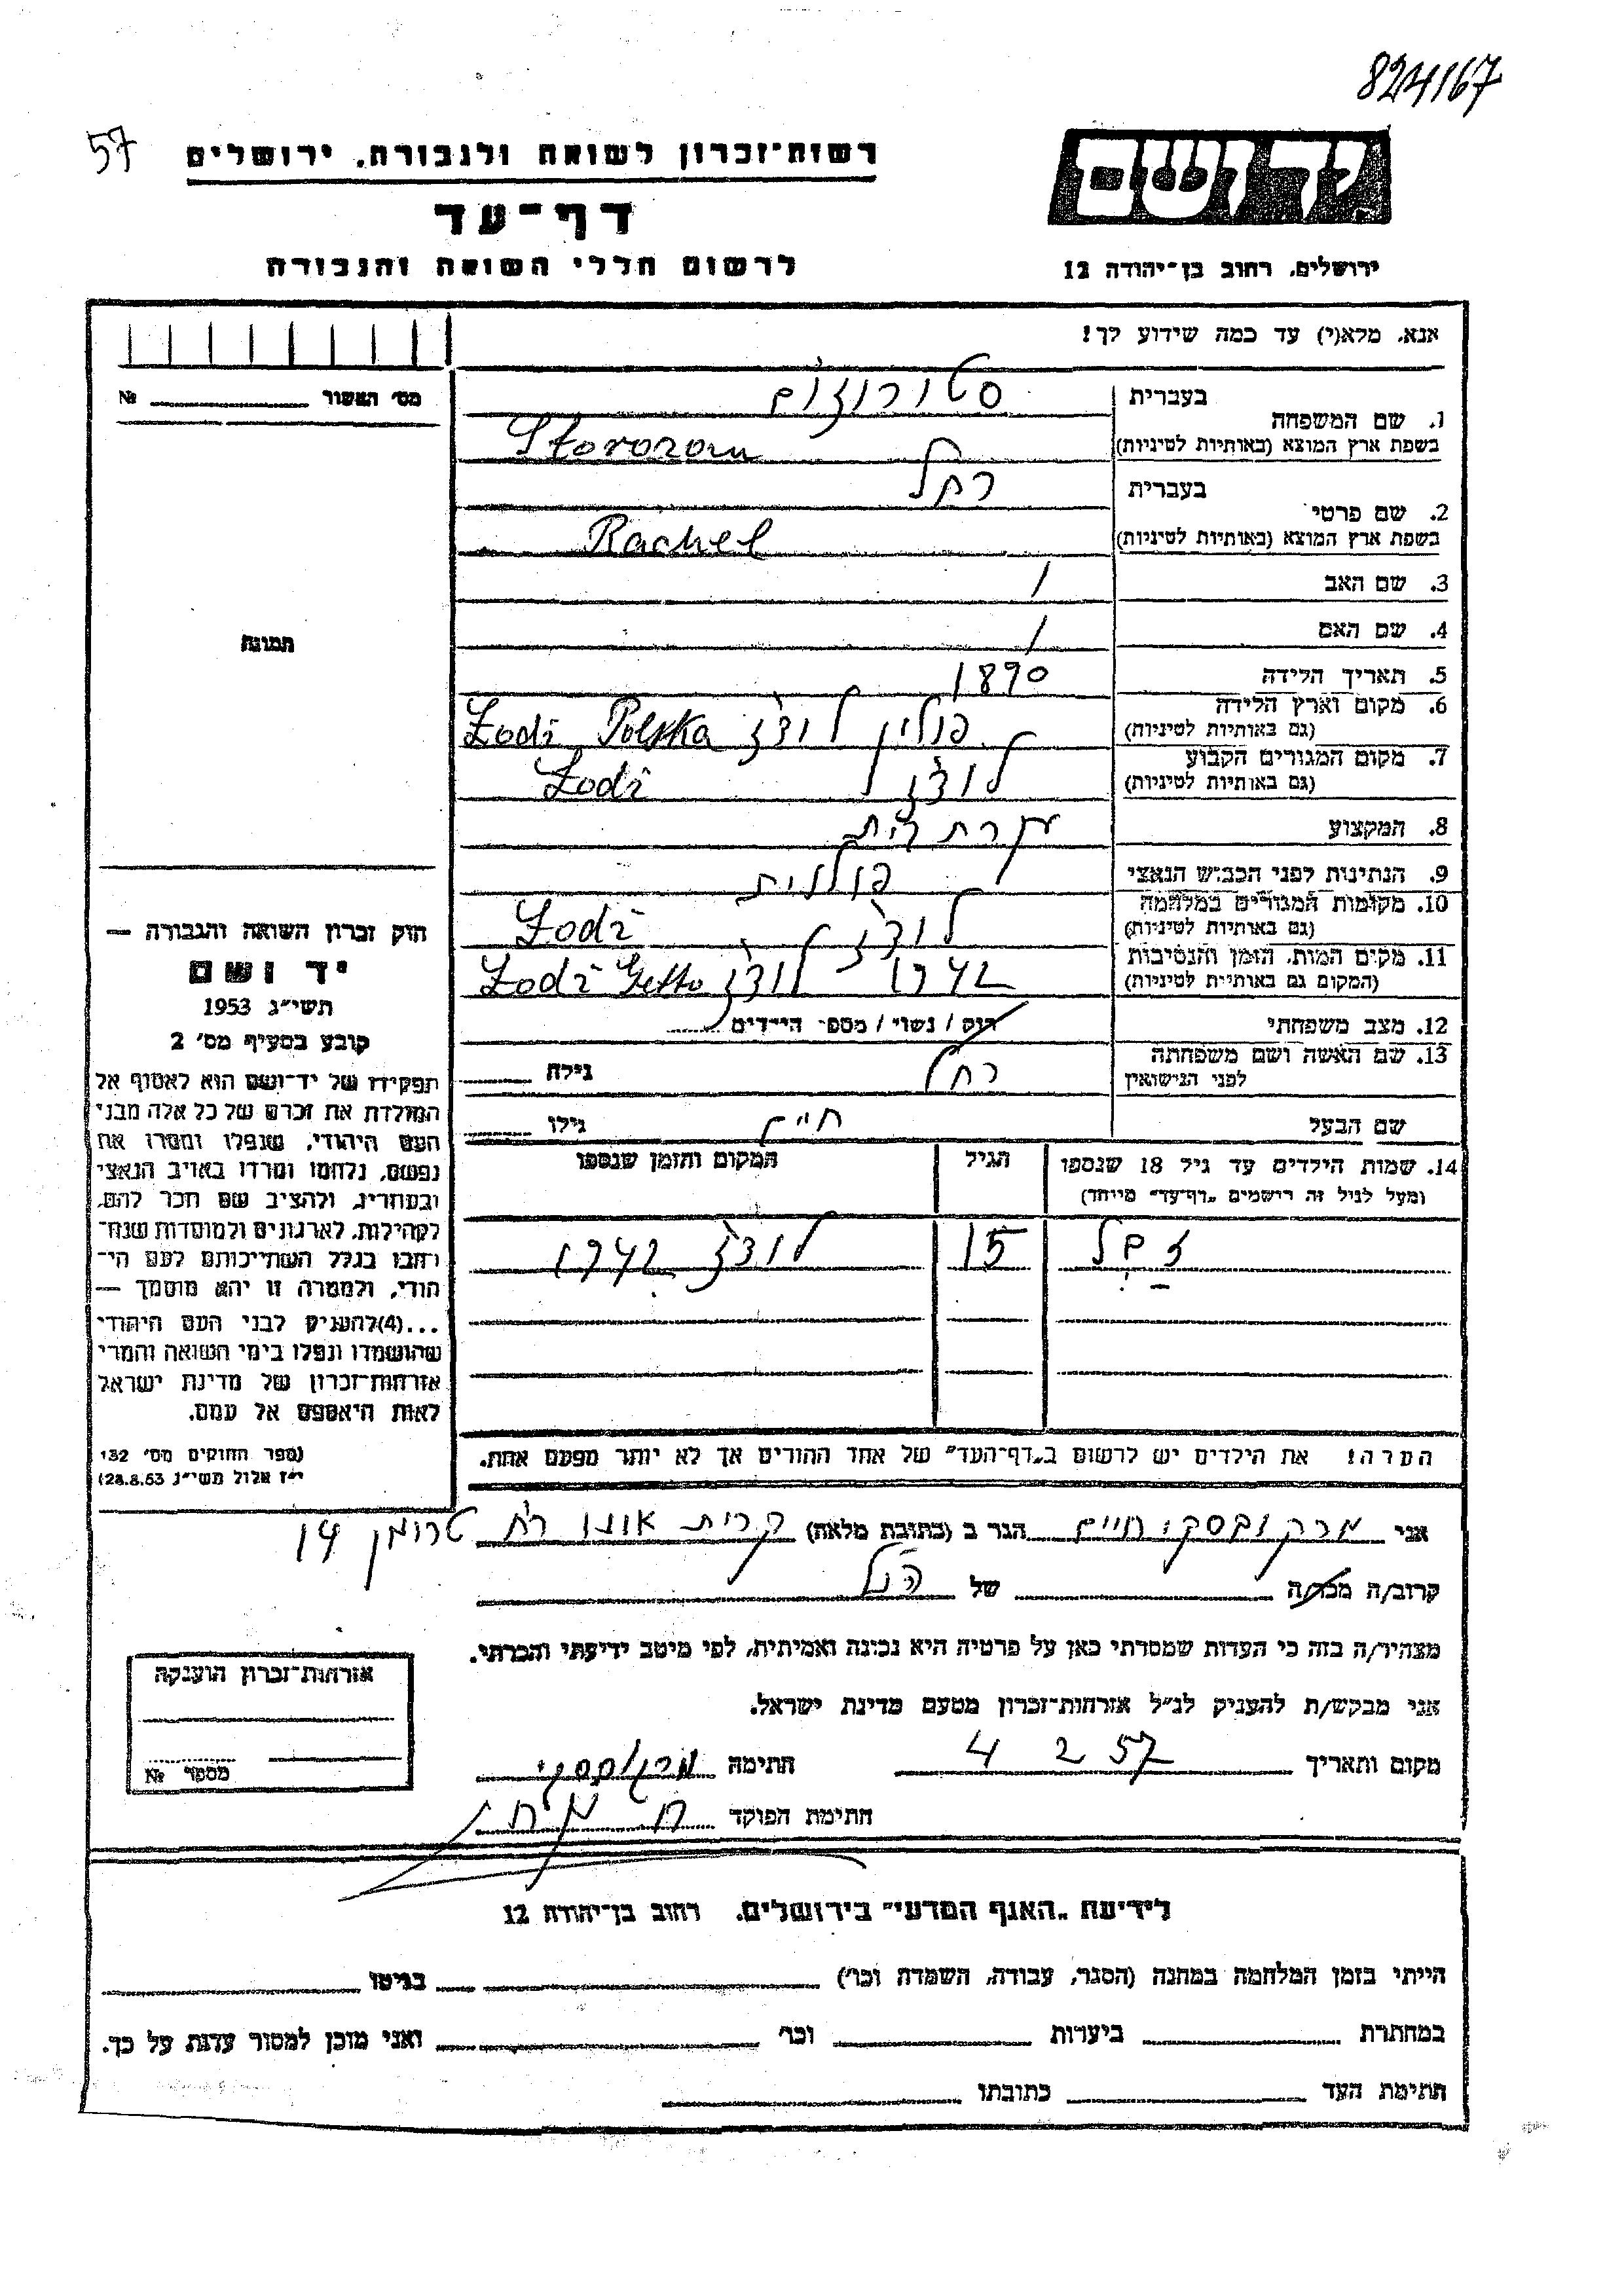 824167
57
רשות־זכרון לשואה ולגבורה, ירושלים
יד ושם
דף־עד
לרשום חללי השואה והגבורה
ירושלים, רחוב בן־יהודה 12
אנא, מלא(י) עד כמה שידוע לך!
מס׳ האשור № 
1. שם המשפחה בעברית סטורוזום
בשפת ארץ המוצא (באותיות לטיניות) Storozom
2. שם פרטי בעברית רחל
בשפת ארץ המוצא (באותיות לטיניות) Rachel
3. שם האב /
4. שם האם /
5. תאריך הלידה 1890
6. מקום וארץ הלידה (גם באותיות לטיניות) פולין לודז Łodź Polska
7. מקום המגורים הקבוע (גם באותיות לטיניות) לודז Łodź
8. המקצוע עקרת בית
9. הנתינות לפני הכבוש הנאצי פולנית
10. מקומות המגורים במלחמה (גם באותיות לטיניות) לודז Łodź
11. מקום המות, הזמן והנסיבות (המקום גם באותיות לטיניות) 1942 לודז Łodź Getto
12. מצב משפחתי רוק / נשוי / מספר הילדים
13. שם האשה ושם משפחתה לפני הנישואין רחל גילה
שם הבעל חיים גילו
14. שמות הילדים עד גיל 18 שנספו
(ומעל לגיל זה רישמים „דף־עד״ מייוחד)
הגיל
המקום והזמן שנספו
15 לודז 1942
הערה! את הילדים יש לרשום ב„דף־העד״ של אחד ההורים אך לא יותר מפעם אחת.
תמונה
חוק זכרון השואה והגבורה —
יד ושם
תשי״ג 1953
קובע בסעיף מס׳ 2
תפקידו של יד־ושם הוא לאסוף אל
המולדת את זכרם של כל אלה מבני
העם היהודי, שנפלו ומסרו את
נפשם, נלחמו ומרדו באויב הנאצי
ובעוזריו, ולהציב שם וזכר להם,
לקהילות, לארגונים ולמוסדות שנח־
רבו בגלל השתייכותם לעם הי־
הודי, ולמטרה זו יהא מוסמך —
...(4)להעניק לבני העם היהודי
שהושמדו ונפלו בימי השואה והמרי
אזרחות־זכרון של מדינת ישראל
לאות היאספם אל עמם.
(ספר החוקים מס׳ 132
י״ז אלול תשי״ג 28.8.53)
אני מרקובסקי חיים הגר ב (כתובת מלאה) קרית אונו רח׳ טרומן 14
קרוב/ה מכר/ה של הנ״ל
מצהיר/ה בזה כי העדות שמסרתי כאן על פרטיה היא נכונה ואמיתית, לפי מיטב ידיעתי והכרתי.
אני מבקש/ת להעניק לנ״ל אזרחות־זכרון מטעם מדינת ישראל.
מקום ותאריך 4 2 57 חתימה מרקובסקי
חתימת הפוקד
אזרחות־זכרון הוענקה
מספר №
לידיעת „האגף המדעי״ בירושלים, רחוב בן־יהודה 12
הייתי בזמן המלחמה במחנה (הסגר, עבודה, השמדה וכו׳) בגיטו
במחתרת ביערות וכו׳ ואני מוכן למסור עדות על כך.
חתימת העד כתובתו